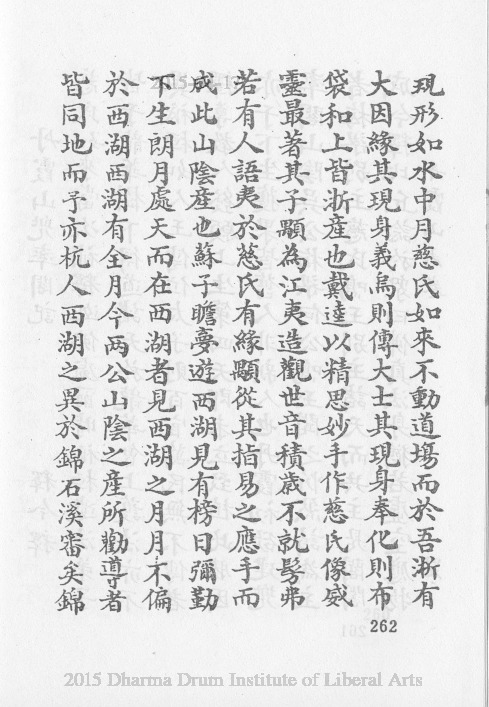 現形如水中月慈氏如來不動道場而於吾浙有
大因緣其現身義烏則傳大士其現身奉化則布
袋和上皆浙產也戴逵以精思妙手作慈氏像威
靈最著其子顒為江夷造觀世音積歲不就髣弗
若有人語夷於慈氏有緣顒從其指易之應手而
成此山陰產也蘇子瞻夢遊西湖見有榜曰彌勒
下生朗月處天而在西湖者見西湖之月月不偏
於西湖西湖有全月今兩公山陰之產所勸導者
皆同地而予亦杭人西湖之異於錦石溪審矣錦
262
2015 Dharma Drum Institute of Liberal Arts